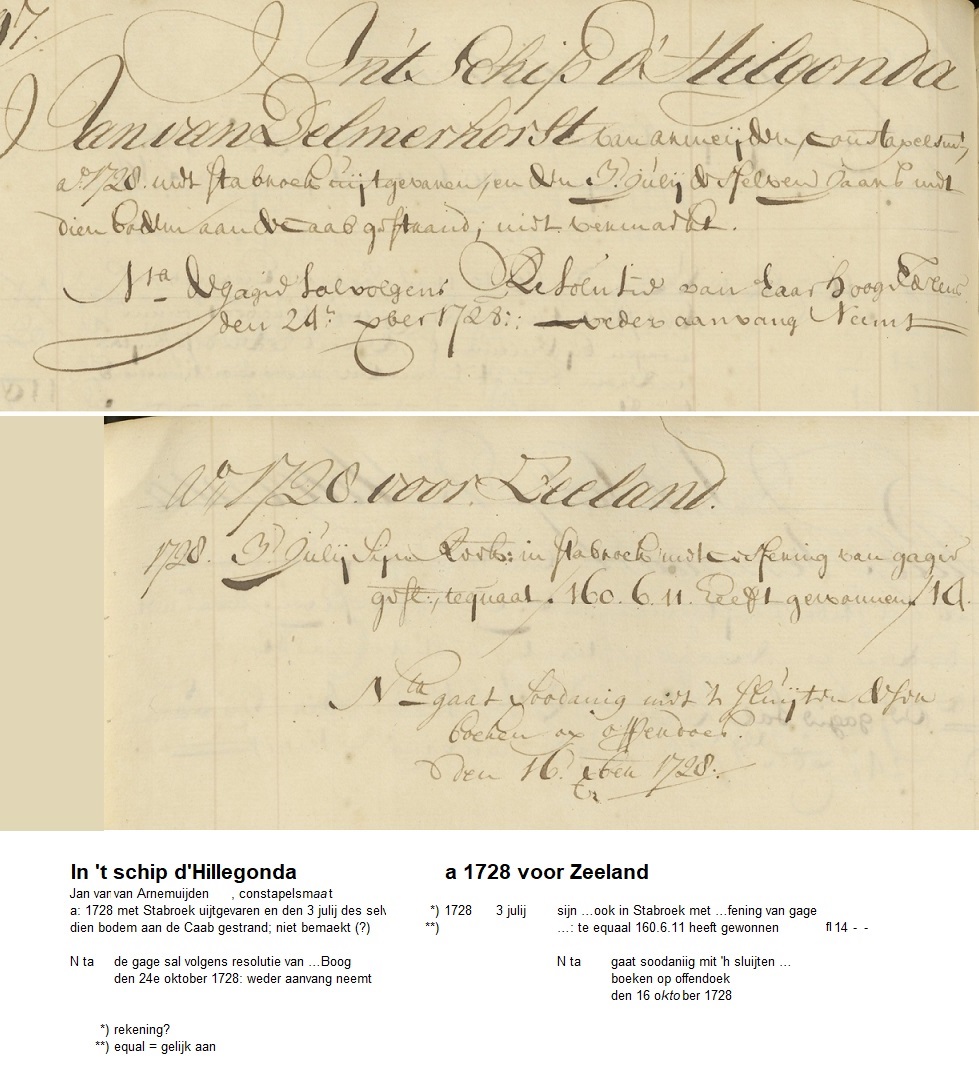 7.
In't Schip d' Hilgonda
Jan van Delmerhorst van armeijden, Constapelsm,
aº. 1728. met Stabroek uijtgevaren, en den 3. Julij deselven Jaars met
dien bodem aan de Caab gestrand; niet vermaekt.
Nta de gagie sal volgens Resolutie van haar hoog Edelens
den 24n. xber 1728:: weder aanvang Neemt
Aº. 1728. voor Zeeland.
1728. 3. Julij Sijn in Stabroek met van gagie
te quaat. 160. 6. 11. heeft gewonnen / 14.
Nta gaat soodanig met 't sluijten deser
boeken op
den 16. xber 1728.
In 't schip d'Hillegonda
Jan var van Arnemuijden , constapelsmaat
a: 1728 met Stabroek uijtgevaren en den 3 julij des selv
dien bodem aan de Caab gestrand; niet bemaekt (?)
N ta de gage sal volgens resolutie van ...Boog
den 24e oktober 1728: weder aanvang neemt
*) rekening?
**) equal = gelijk aan
a 1728 voor Zeeland
*) 1728 3 julij sijn ...ook in Stabroek met ...fening van gage
**) ...: te equaal 160.6.11 heeft gewonnen fl 14 - -
N ta gaat soodaniig mit 'h sluijten ...
boeken op offendoek
den 16 oktober 1728